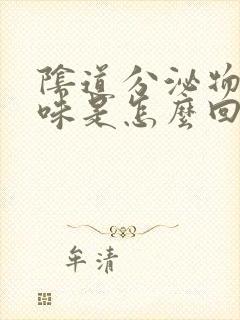 陰道分泌物
味是怎麼回
牟清